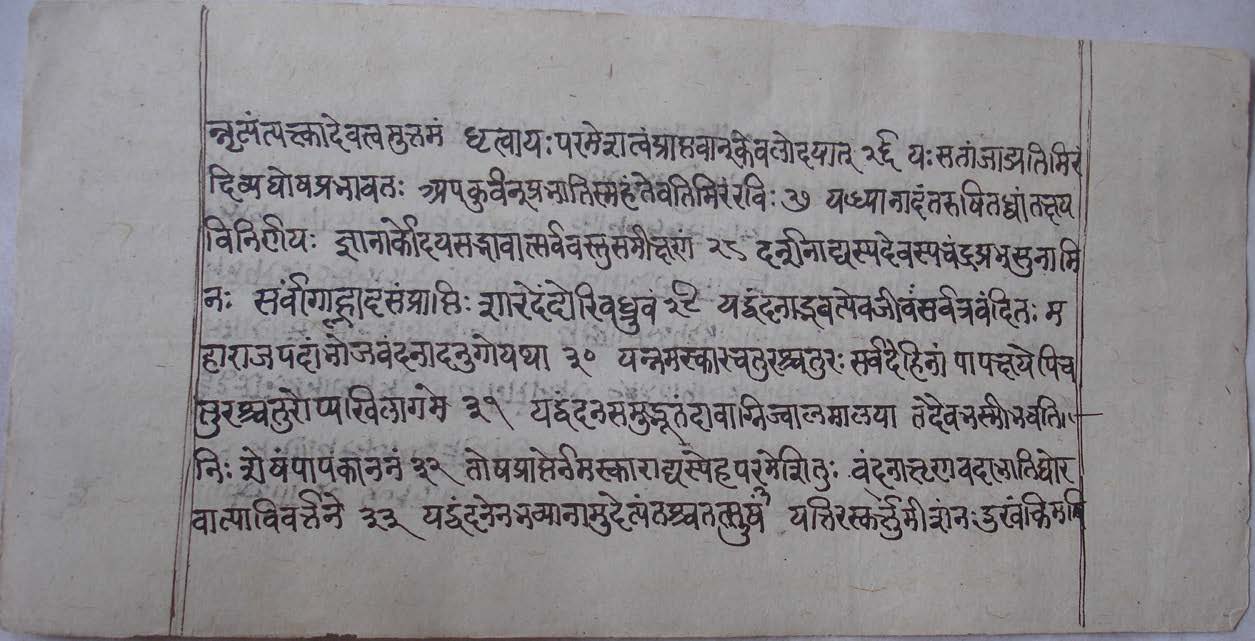 न्नृत्यंत्यक्त्कादेवत्वमुत्तमं धृत्वायः परमेशत्वंप्राप्तवान्केवलोदयात् २६ यः सतांजाड्यतिमिरं
दिव्यघोषप्रभावतः अपकुर्वन्प्रभातिस्महंतेवतिमिरंरविः २७ यध्यानादंतरुषितध्वांतक्षय
विनिर्णयः ज्ञानार्कोदयसद्भावात्सर्ववस्तुसमीक्षणं २८ दर्शनाद्यस्यदेवस्यचंद्रप्रभसुनामि
नः सर्वांगाह्लादसंप्राप्तिः शारदेंदोरिवध्रुवं २९ यद्वंदनाद्भवत्येवजीवःसर्वत्रवंदितः म
हाराजपदांभोजवंदनादनुगोयथा ३० यन्नमस्कारचतुरश्चतुरः सर्वदेहिनां पापक्षयेपिच
तुरश्चतुरोप्यखिलागमे ३१ यद्वंदनसमुद्भूतदावाग्निज्वालमालया तदेवभस्मीभवति
निः शेषंपापकाननं ३२ तोषप्राप्तेर्नमस्काराद्यस्येहपरमेशितुः वंदनात्तरणवदालातिघोर
वात्याविवर्त्तने ३३ यद्वंदनेनभव्यानामुदेत्यं यत्तिरस्कर्त्तुमीशंनःदुखंकिमपि